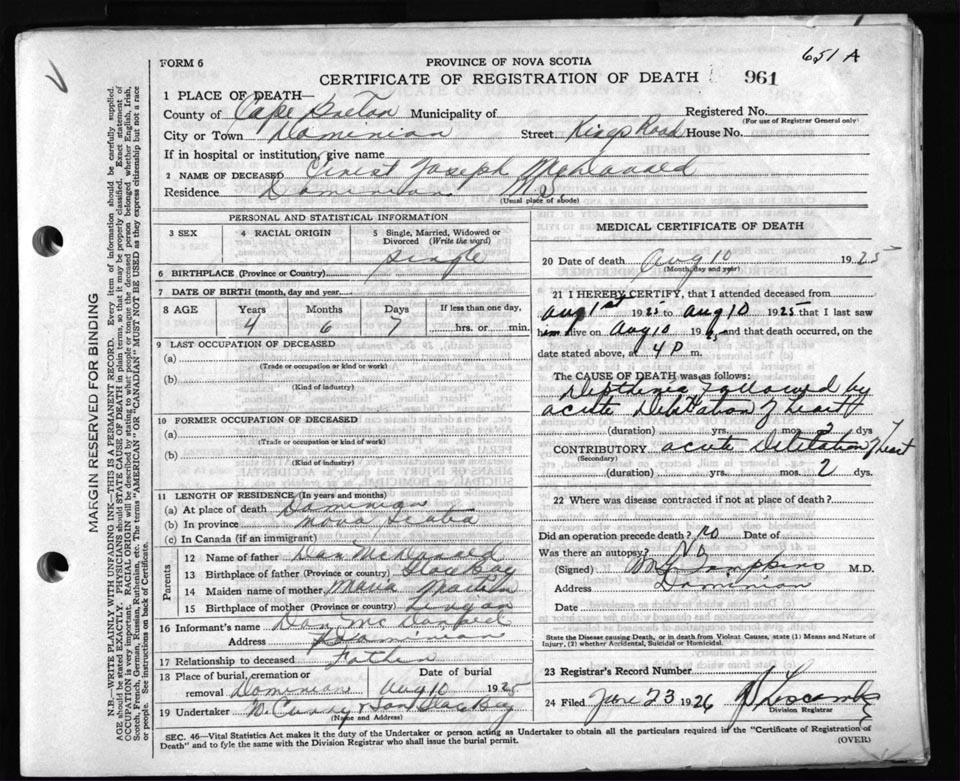 651 A
FORM 6
PROVINCE OF NOVA SCOTIA
CERTIFICATE OF REGISTRATION OF DEATH 961
1 PLACE OF DEATH—
County of Cape Breton Municipality of Registered No.
(For use of Registrar General only)
City or Town Dominion Street Kings Road House No.
If in hospital or institution, give name
2 NAME OF DECEASED Ernest Joseph McDonald
Residence Dominion N.S
(Usual place of abode)
MARGIN RESERVED FOR BINDING
N.B.—WRITE PLAINLY WITH UNFADING INK.—THIS IS A PERMANENT RECORD. Every item of information should be carefully supplied.
AGE should be stated EXACTLY. PHYSICIANS should STATE CAUSE OF DEATH in plain terms, so that it may be properly classified. Exact statement of
OCCUPATION is very important. RACIAL ORIGIN will be described by stating to what people or tongue the deceased person belonged whether English, Irish,
Scotch, French, German, Russian, Ruthenian, etc. The terms "AMERICAN" OR "CANADIAN" MUST NOT BE USED as they express citizenship but not a race
or people. See instructions on back of Certificate.
PERSONAL AND STATISTICAL INFORMATION
3 SEX
4 RACIAL ORIGIN
5 Single, Married, Widowed or
Divorced (Write the word)
Single
6 BIRTHPLACE (Province or Country)
7 DATE OF BIRTH (month, day and year)
8 AGE Years Months Days If less than one day,
4 6 7 hrs. or min.
9 LAST OCCUPATION OF DECEASED
(a)
(Trade or occupation or kind or work)
(b)
(Kind of industry)
10 FORMER OCCUPATION OF DECEASED
(a)
(Trade or occupation or kind of work)
(b)
(Kind of industry)
11 LENGTH OF RESIDENCE (In years and months)
(a) At place of death Dominion
(b) In province Nova Scotia
(c) In Canada (if an immigrant)
Parents
12 Name of father Dan McDonald
13 Birthplace of father (Province or country) Glace Bay
14 Maiden name of mother Maria Martin
15 Birthplace of mother (Province or country) Lingan
16 Informant's name Dan McDonald
Address Dominion
17 Relationship to deceased Father
18 Place of burial, cremation or Date of burial
removal Dominion Aug 10 1925
19 Undertaker McCurdy & Son Glace Bay
(Name and Address)
MEDICAL CERTIFICATE OF DEATH
20 Date of death Aug 10 1925
(Month, day and year)
21 I HEREBY CERTIFY, that I attended deceased from
Aug 1st 1925 to Aug 10 1925 that I last saw
him alive on Aug 10 1925 and that death occurred, on the
date stated above, at 4 P m.
The CAUSE OF DEATH was as follows:
Diptheria followed by
acute Dilitation of heart
(duration) yrs. mos. 2 dys
CONTRIBUTORY acute Dilitation of heart
(Secondary)
(duration) yrs. mos. 2 dys.
22 Where was disease contracted if not at place of death?
Did an operation precede death? No
Was there an autopsy? No
(Signed) Tompkins M.D.
Address Dominion
Date
State the Disease causing Death, or in death from Violent Causes, state (1) Means and Nature of
Injury, (2) whether Accidental, Suicidal or Homicidal.
23 Registrar's Record Number
24 Filed Jan 23 1926
Division Registrar
SEC. 46—Vital Statistics Act makes it the duty of the Undertaker or person acting as Undertaker to obtain all the particulars required in the "Certificate of Registration of
Death" and to fyle the same with the Division Registrar who shall issue the burial permit.
(OVER)